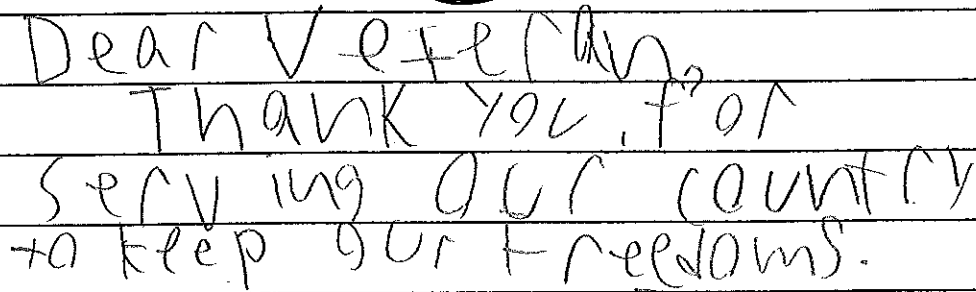 Dear Veteran,
Thank you for
serving our country
to keep our freedoms.